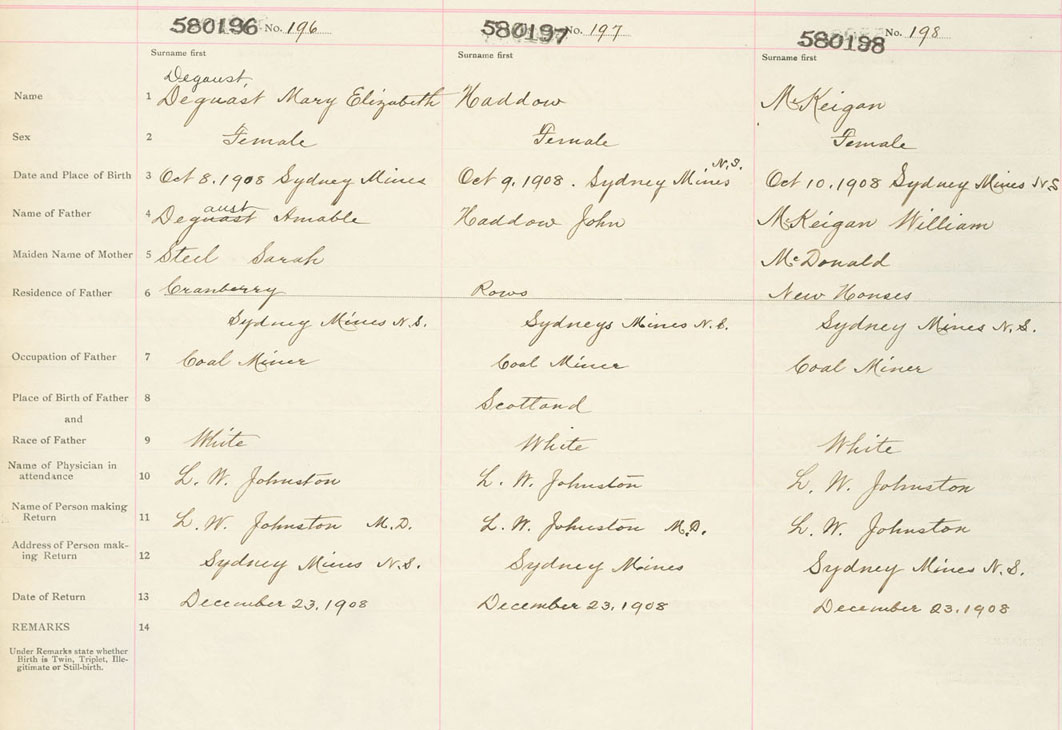 580196 No. 196 580197 No. 197 580198 No. 198
Surname first Surname first Surname first
Degaust
Name 1 Deguast Mary Elizabeth Haddow McKeigan
Sex 2 Female Female Female
N.S.
Date and Place of Birth 3 Oct 8, 1908 Sydney Mines Oct 9, 1908. Sydney Mines Oct 10, 1908 Sydney Mines N.S
aust
Name of Father 4 Deguast Amable Haddow John McKeigan William
Maiden Name of Mother 5 Steel Sarah McDonald
Residence of Father 6 Cranberry Rows New Houses
Sydney Mines N.S. Sydneys Mines N.S. Sydney Mines N.S.
Occupation of Father 7 Coal Miner Coal Miner Coal Miner
Place of Birth of Father 8 Scotland
and
Race of Father 9 White White White
Name of Physician in
attendance 10 L. W. Johnston L. W. Johnston L. W. Johnston
Name of Person making
Return 11 L. W. Johnston M.D. L. W. Johnston M.D. L. W. Johnston
Address of Person mak-
ing Return 12 Sydney Mines N.S. Sydney Mines Sydney Mines N.S.
Date of Return 13 December 23, 1908 December 23, 1908 December 23, 1908
REMARKS 14
Under Remarks state whether
Birth is Twin, Triplet, Ille-
gitimate or Still-birth.